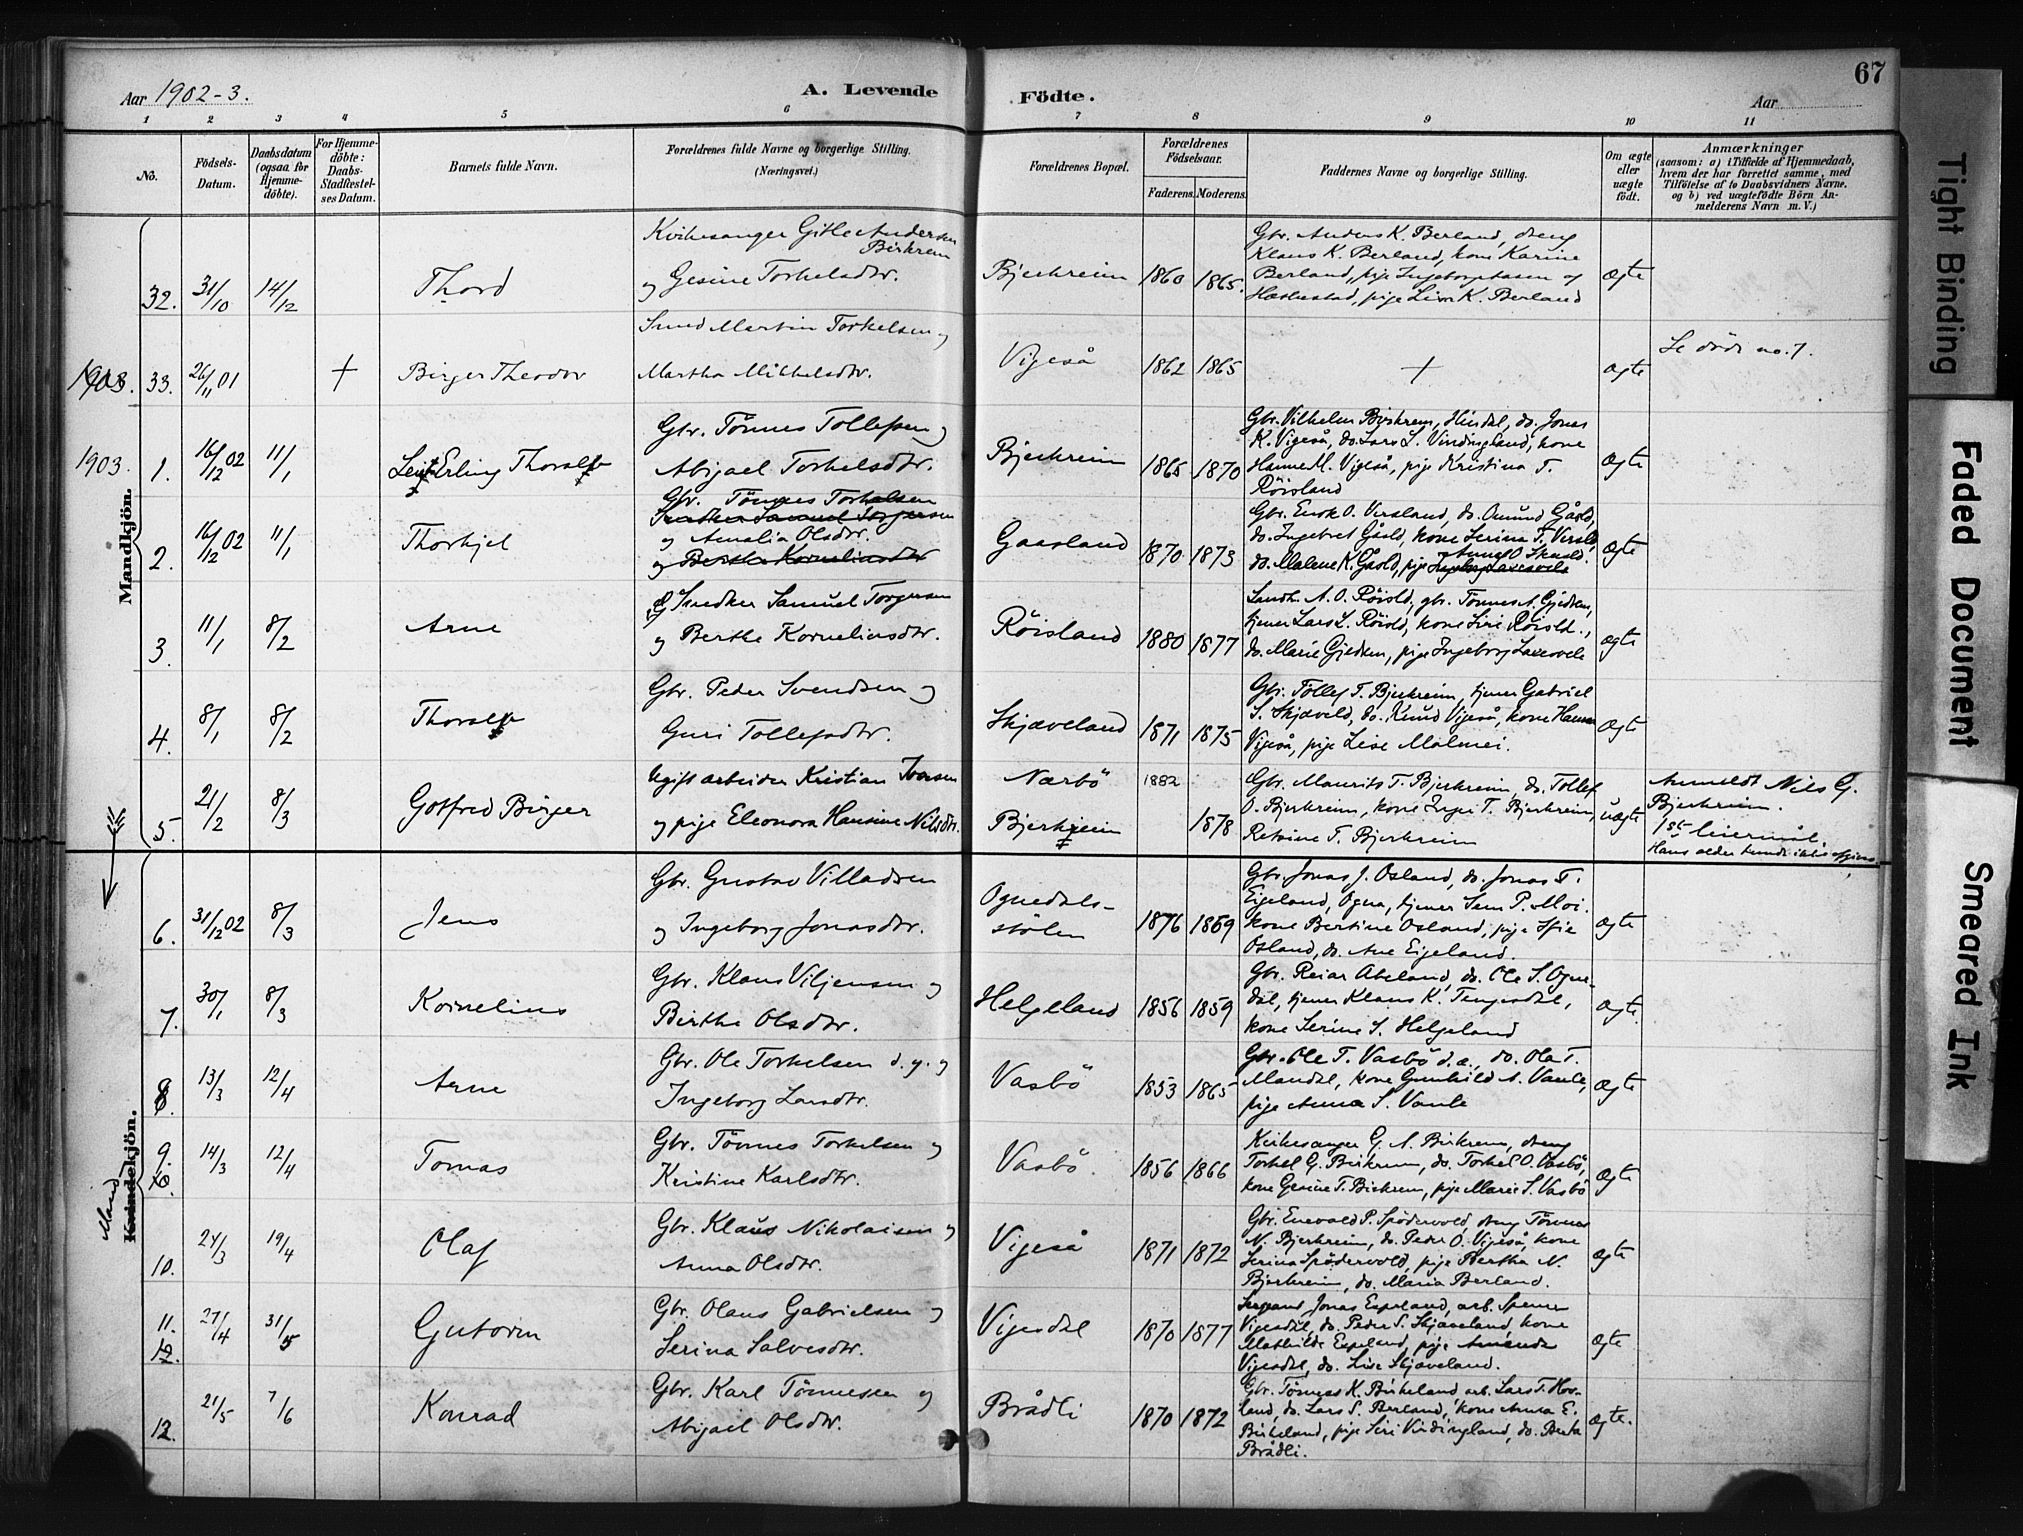 Aar 1902-3.
A. Levende Födte.
67
Aar
1 2 3 4 5 6 7 8 9 10 11
No.
Födsels-Datum.
Daabsdatum (ogsaa for Hjemme-döbte).
For Hjemme-döbte: Daabs-Stadfæstel-ses Datum.
Barnets fulde Navn.
Forældrenes fulde Navne og borgerlige Stilling.
(Næringsvei.)
Forældrenes Bopæl.
Forældrenes Födselsaar.
Faderens. Moderens.
Faddernes Navne og borgerlige Stilling.
Om ægte eller uægte födt.
Anmærkninger
(saasom: a) i Tilfælde af Hjemmedaab,
hvem der har forrettet samme, med
Tilföielse af to Daabsvidners Navne,
og b) ved uægtefödte Börn An-
melderens Navn m. V.)
Mandkjön.
32. 31/10 14/12 Thord
Kirkesanger Gitle Andersen
Birkrem
og Gesine Torkelsdtr.
Bjerkreim 1860 1865.
Gbr. Anders K. Berland, dreng
Klaus K. Berland, kone Karine
Berland, pige Ingeborg
pige Lise K. Berland
ægte
33. 26/11 01 + Birger Theodor
Svend Martin Torkelsen og
Martha Mikkelsdtr.
Vigeså 1862 1865 + ægte
Se døde no. 7.
1903. 1. 16/12 02 11/1 Leif Erling Thoralf
Gbr. Tönnes Tollefsen og
Abigael Torkelsdtr.
Bjerkreim 1865 1870
Gbr. Vilhelm Birkrem, do. Jonas
K. Vigeså, do. Lars L. Vindingland, kone
Hanne M. Vigeså, pige Kristina T.
Röisland
ægte
2. 16/12 02 11/1 Thorkjel
Gbr. Tönnes Torkelsen
Snedker Samuel Torgersen
og Amalia Olsdtr.
og Berthe Korneliusdtr
Gaasland 1870 1873
Gbr. Enok O. Virsland, do. Omund Gåsld,
do. Ingebret Gåsld, kone Serina T. Virsld,
Anne O. Skåsld.
do. Malene K. Gåsld, pige Ingeborg Laxesvele
ægte
3. 11/1 8/2 Arne
Snedker Samuel Torgersen
og Berthe Korneliusdtr.
Röisland 1880 1877
Landh. A. O. Röisld, gbr. Tönnes A. Gjedsen,
tjener Lars L. Röisld, kone Siri Röisld.,
do. Marie Gjedsen, pige Ingeborg Laxesvele
ægte
4. 8/1 8/2 Thoralf
Gbr. Peder Svendsen og
Guri Tollefsdtr.
Skjæveland 1871 1875
Gbr. Tollef T. Bjerkreim, tjener Gabriel
S. Skjæveld, do. Knud Vigeså, kone Hanne
Vigeså, pige Lise Malmei.
ægte
5. 21/2 8/3 Gotfred Birger
Ugift arbeider Kristian Iversen
og pige Eleonora Hansine Nilsdtr.
Nærbö 1882
Bjerkreim 1878
Gbr. Maurits T. Bjerkreim, do. Tollef
O. Bjerkreim, kone Inger T. Bjerkreim,
Retsine T. Bjerkreim
uægte
Anmeldt Nils G.
Bjerkreim.
1st leiermål.
Hans alder kunde ikke opgives.
Mand
Kvindekjön.
6. 31/12 02 8/3 Jens
Gbr. Gustav Villadsen
og Ingeborg Jonasdtr.
Ognedals-
stölen
1876 1869
Gbr. Jonas J. Osland, do. Jonas T.
Eigeland, Ogna, tjener Sem P. Moi.
kone Bertine Osland, pige Sfie
Osland, do. Ane Eigeland.
ægte
7. 30/1 8/3 Kornelius
Gbr. Klaus Viljensen og
Birthe Olsdtr.
Helgeland 1856 1859
Gbr. Reiar Abeland, do. Ole S. Ogne-
dal, tjener Klaus K. Tengesdal,
kone Serine S. Helgeland
ægte
8. 13/3 12/4 Arne
Gbr. Ole Torkelsen d. y. og
Ingeborg Larsdtr.
Vasbö 1853 1865
Gbr. Ole T. Vasbö d. æ., do. Ola T.
Mandal, kone Gunhild A. Vaule,
pige Anna S. Vaule
ægte
9. 14/3 12/4 Tomas
Gbr. Tönnes Torkelsen og
Kristine Karlsdtr.
Vasbö 1856 1866
Kirkesanger G. A. Birkrem, dreng
Torkel G. Birkrem, do. Torkel O. Vasbö,
kone Gesine T. Birkrem, pige Marie S. Vasbö
ægte
10. 24/3 19/4 Olaf
Gbr. Klaus Nikolaisen og
Anna Olsdtr.
Vigeså 1871 1872
Gbr. Enevald P. Spödervold, dreng Tönnes
N. Bjerkreim, do. Peder O. Vigeså, kone
Serina Spödervold, pige Bertha N.
Bjerkreim, do. Maria Berland.
ægte
11. 27/4 31/5 Gutorm
Gbr. Olaus Gabrielsen og
Serina Salvesdtr.
Vigesdal 1870 1877
Sergeant Jonas Espeland, arb. Spenser
Vigesdal, do. Peder S. Skjæveland, kone
Mathilde Espeland, pige Amanda
Vigesdal, do. Lise Skjæveland.
ægte
12. 21/5 7/6 Konrad
Gbr. Karl Tönnesen og
Abigail Olsdtr.
Brådli 1870 1872
Gbr. Tönnes H. Birkeland, arb. Lars T. Hov-
land, do. Lars S. Berland, kone Anna E.
Birkeland, pige Siri Vindingland, do. Berta
Brådli.
ægte.
Tight Binding
Faded Document
Smeared Ink